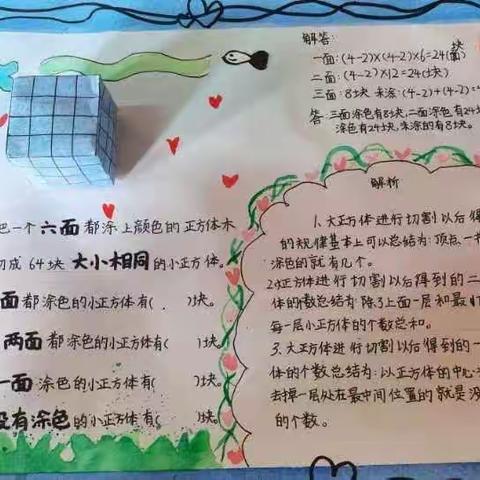 解答:
一面:(4-2)×(4-2)×6=24(块)
二面:(4-2)×12=24(块)
三面:8块 未涂:(4-2)+(4-2)=
答:三面涂色有8块,二面涂色有24块
涂色有24块,未涂的有8块。
把一个六面都涂上颜色的正方体木
切成64块大小相同的小正方体。
面都涂色的小正方体有( )块。
两面都涂色的小正方体有( )块。
一面涂色的小正方体有( )块。
没有涂色的小正方体有( )块。
解析
1.大正方体进行切割以后得
的规律基本上可以总结为:顶点一
涂色的就有几个。
2.正方体进行切割以后得到的二
体的个数总结为:除了上面一层和最
每一层小正方体的个数总和。
3.大正方体进行切割以后得到的一
体的个数总结为:以正方体的中心
去掉一层处在最中间位置的就是没
的个数。